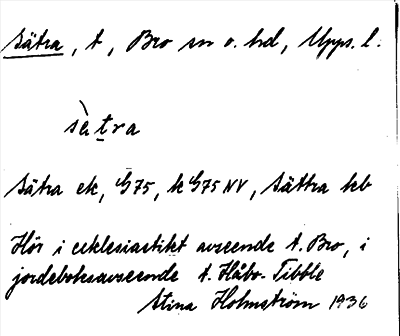 Sätra, t, Bro sn o. hd, Upps. l.
sὲtra
Sätra ek, G75, k G75 NV, Sättra kb
Hör i ecklesiastikt avseende t. Bro, i
jordeboksavseende t. Håbo-Tibble
Stina Holmström 1936